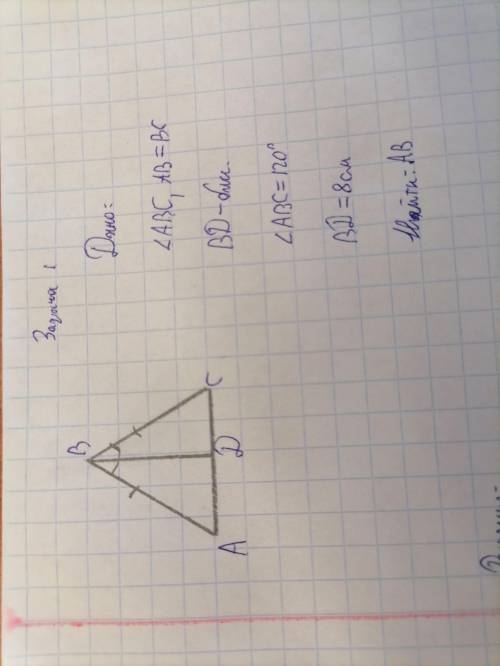 Задача 1
Дано:
∠ABC, AB = BC
BD - бис.
∠ABC = 120°
BD = 8 см
Найти: AB
B
C
D
A